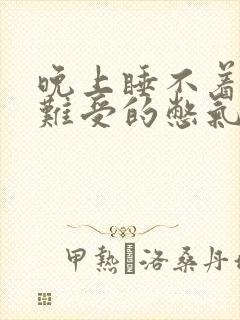 晚上睡不着
難受的憋氣
甲熱洛桑丹